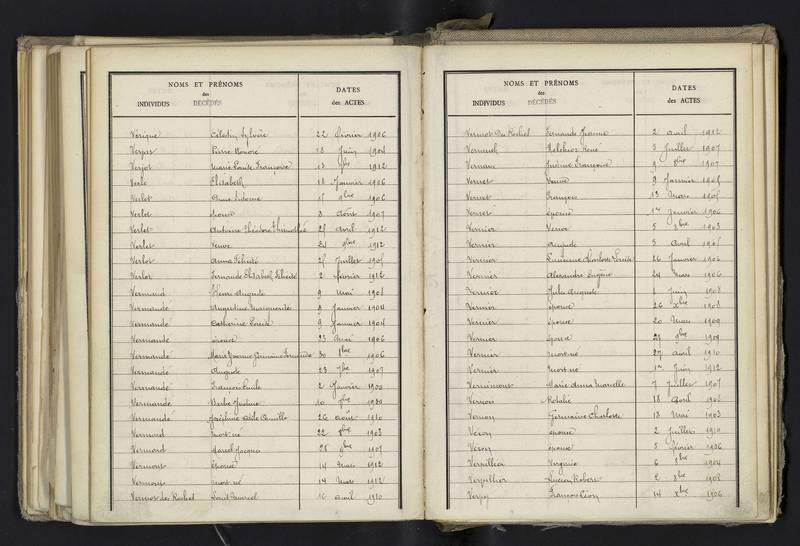 NOMS ET PRÉNOMS
des
INDIVIDUS DÉCÉDÉS
DATES
des ACTES
Célestin Sylvère 22 février 1906
Verpas Pierre Honoré 18 Juin 1904
Verjot Marie Louise Françoise 13 1912
Verle Elisabeth 18 Janvier 1906
Verlet 15 9bre 1906
Verlet épouse 3 août 1907
Verlet Antoine Théodore 25 avril 1912
Verlet Veuve 24 9bre 1912
Verlot Anna Félicité 25 Juillet 1905
Verlot Fernande Elisabeth Félicité 2 février 1912
Vermand Henri Auguste 9 Mai 1908
Vermande Augustine Marguerite 8 Janvier 1904
Vermande Catherine Louise 9 Janvier 1904
Vermande épouse 23 Mai 1906
Vermande Marie Jeanne 30 8bre 1906
Vermande Auguste 23 7bre 1907
Vermande François Emile 2 Janvier
Vermande Berthe Justine 10
Vermande Joséphine Camille 26 août 1910
Vermond mort-né 22 8bre 1903
Vermond Marcel Jacques 28 9bre 1907
Vermont épouse 14 Mars 1912
Vermont mort-né 14 Mars 1912
Vermot des Roches Louis Marcel 16 avril 1910
NOMS ET PRÉNOMS
des
INDIVIDUS DÉCÉDÉS
DATES
des ACTES
Vermot Des Roches Fernande Jeanne 2 avril 1912
Melchior René 5 Juillet 1907
Justine Françoise 9 1907
Vernet Veuve 9 Janvier 1905
Vernet François 13 Mars 1905
Vernet épouse 1er Janvier 1906
Vernier 5 8bre 1903
Vernier Auguste 5 Avril 1905
Vernier Charlotte 26 Janvier 1906
Vernier Alexandre Eugène 24 Mars 1906
Vernier Jules Auguste Juin 1908
Vernier épouse 26 Xbre 1908
Vernier épouse 20 Mars 1909
Vernier épouse 29 9bre 1909
Vernier mort-né 27 avril 1910
Vernier mort-né 1er Juin 1912
Marie Anna 7 Juillet 1907
Vernois Rosalie 18 Avril
Vernon Germaine Charlotte 18 Mai 1903
Véron épouse 2 Juillet 1910
Véron épouse 5 février 1906
Verpillier Virginie 6 8bre 1904
Verpillier Lucien Robert 2 8bre 1908
François Léon 14 Xbre 1906